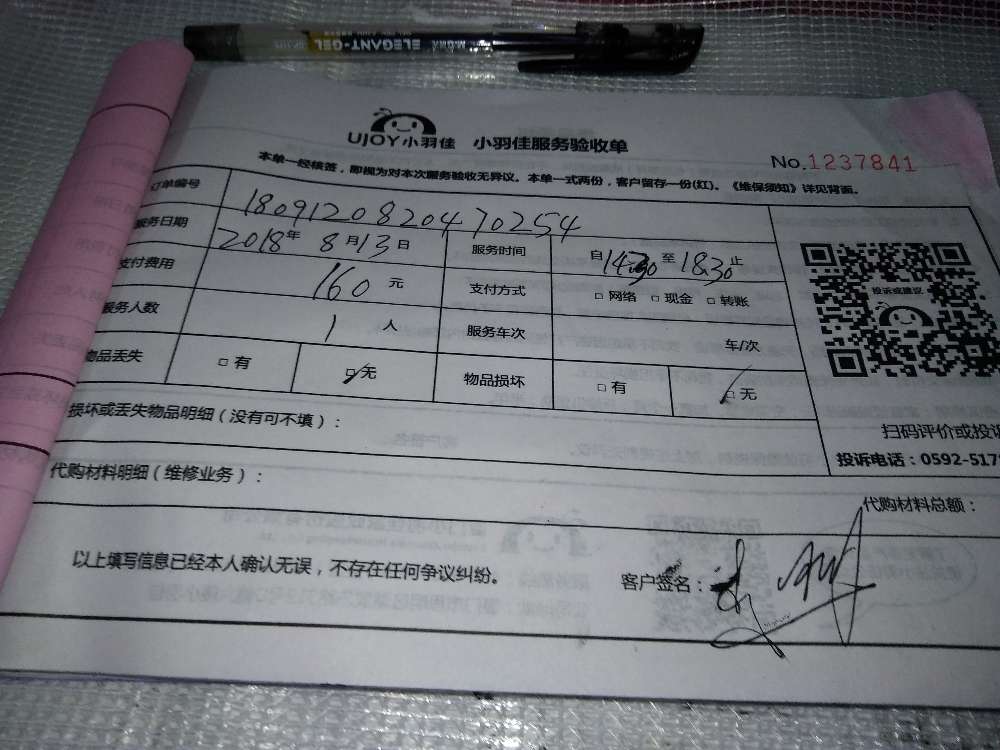 ELEGANT-GEL
UJOY小羽佳 小羽佳服务验收单
No.1237841
本单一经核签，即视为对本次服务验收无异议。本单一式两份，客户留存一份(红)。《维保须知》详见背面。
订单编号 180912082047 0254
服务日期 2018年 8月13日 服务时间 自14:30至18:30止
支付费用 160 元 支付方式 □网络 □现金 □转账
服务人数 1 人 服务车次 车/次
物品丢失 □有 □无 物品损坏 □有 □无
投诉或建议
扫码评价或投诉
投诉电话：0592-517
损坏或丢失物品明细（没有可不填）：
代购材料明细（维修业务）：
代购材料总额：
以上填写信息已经本人确认无误，不存在任何争议纠纷。
客户签名：